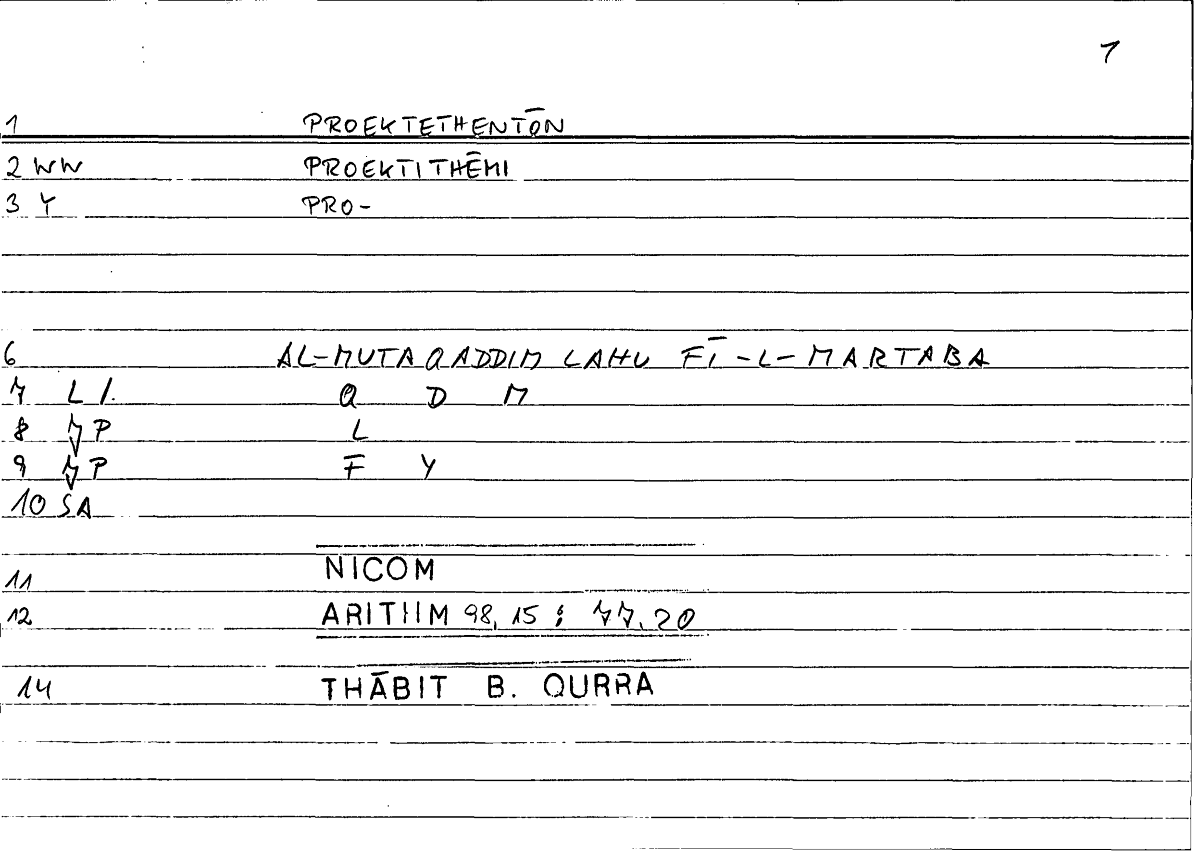 1
1 PROEKTETHENTŌN
2 WW PROEKTITHĒMI
3 Y PRO-
6 AL-MUTAQADDIM LAHU FĪ-L-MARTABA
7 L 1. Q D M
8 P L
9 P F Y
10 SA
11 NICOM
12 ARITHM 98, 15 : 77, 20
14 THĀBIT B. QURRA